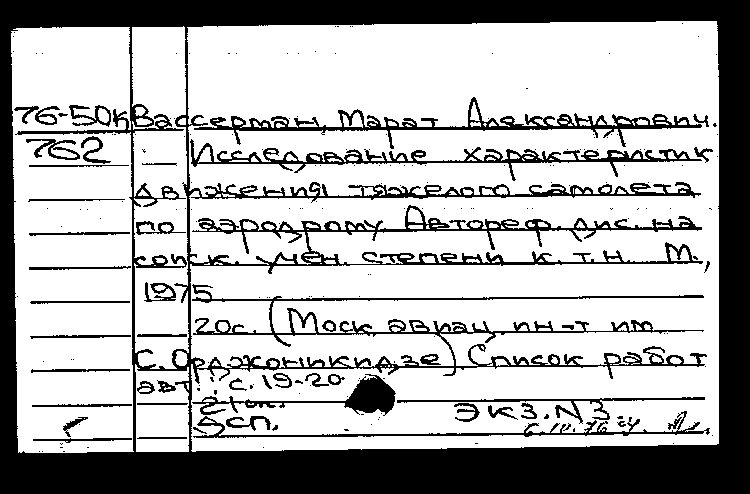 76-50к Вассерман, Марат Александрович.
762 Исследование характеристик
движения тяжелого самолета
по аэродрому. Автореф. дис. на
соиск. учен. степени к. т. н. М.,
1975
20с. (Моск. авиац. ин-т им.
С. Орджоникидзе) Список работ
авт.: с. 19-20
ДСП. ЭКЗ. N3